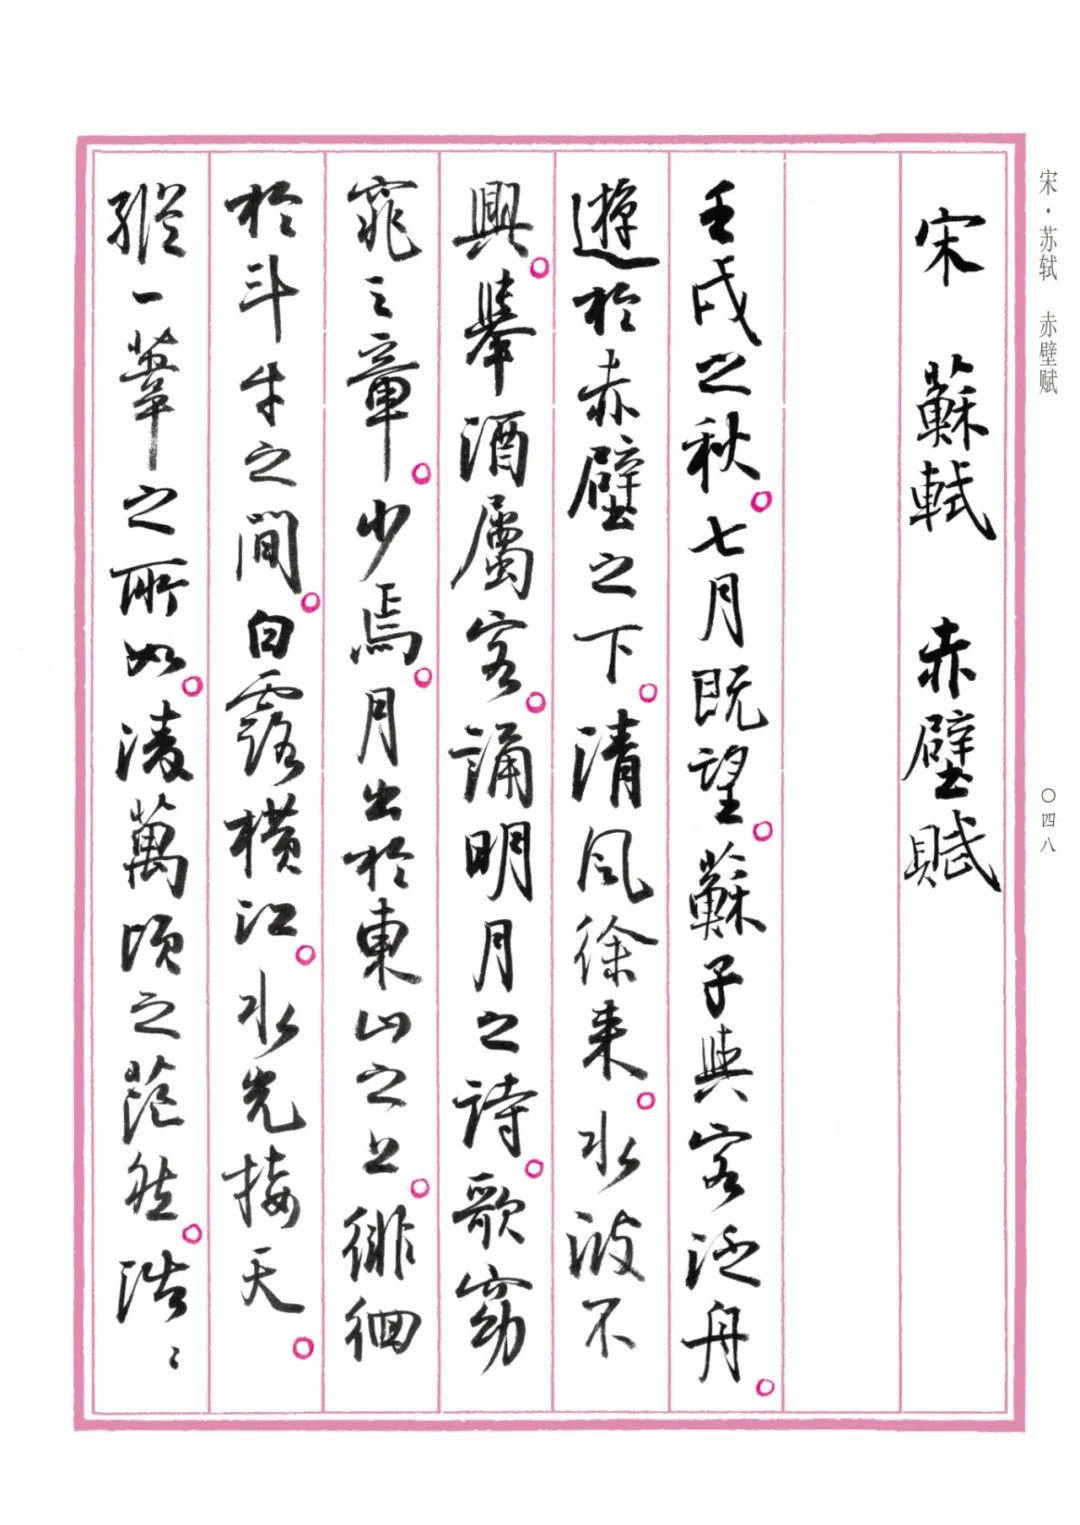 宋·苏轼　赤壁赋
〇四八
宋　蘇軾　赤壁賦
壬戌之秋。七月既望。蘇子與客泛舟。
遊於赤壁之下。清風徐来。水波不
興。舉酒屬客。誦明月之詩。歌窈
窕之章。少焉。月出於東山之上。徘徊
於斗牛之間。白露橫江。水光接天。
縱一葦之所如。淩萬頃之茫然。浩〻